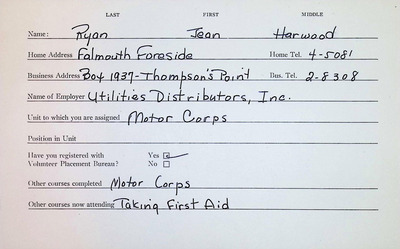 LAST FIRST MIDDLE
Name: Ryan Jean Harwood
Home Address Falmouth Foreside Home Tel. 4-5081
Business Address Box 1937-Thompson's Point Bus. Tel. 2-8308
Name of Employer Utilities Distributors, Inc.
Unit to which you are assigned Motor Corps
Position in Unit
Have you registered with Yes ☑
Volunteer Placement Bureau? No ☐
Other courses completed Motor Corps
Other courses now attending Taking First Aid